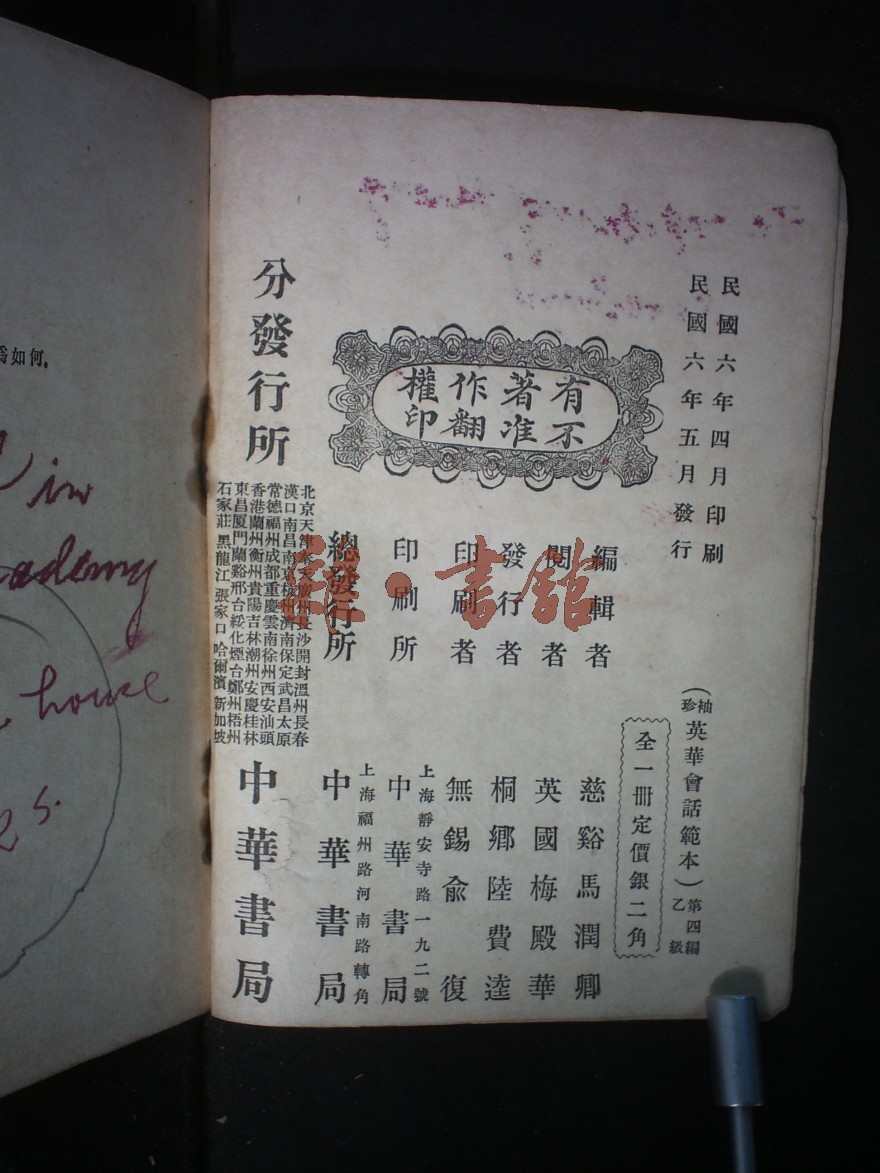 民國六年四月印刷
民國六年五月發行
(袖珍英華會話範本)第四編乙級
全一冊定價銀二角
有著作權
不准翻印
編輯者 慈谿馬潤卿
閱者 英國梅殿華
發行者 桐鄉陸費逵
印刷者 無錫俞復
印刷所 上海靜安寺路一九二號 中華書局
總發行所 上海福州路河南路轉角 中華書局
分發行所
北京天津奉天廣州長沙開封溫州長春
漢口南昌南杭州濟南保定武昌太原
常德福州成都重慶雲南徐州西安汕頭
香港蘭州衡州貴陽吉林潮州安慶桂林
東昌厦門蘭谿邢台綏化煙台鄭州梧州
石家莊 黑龍江 張家口 哈爾濱 新加坡
中華書局
為如何。
in
house
書館